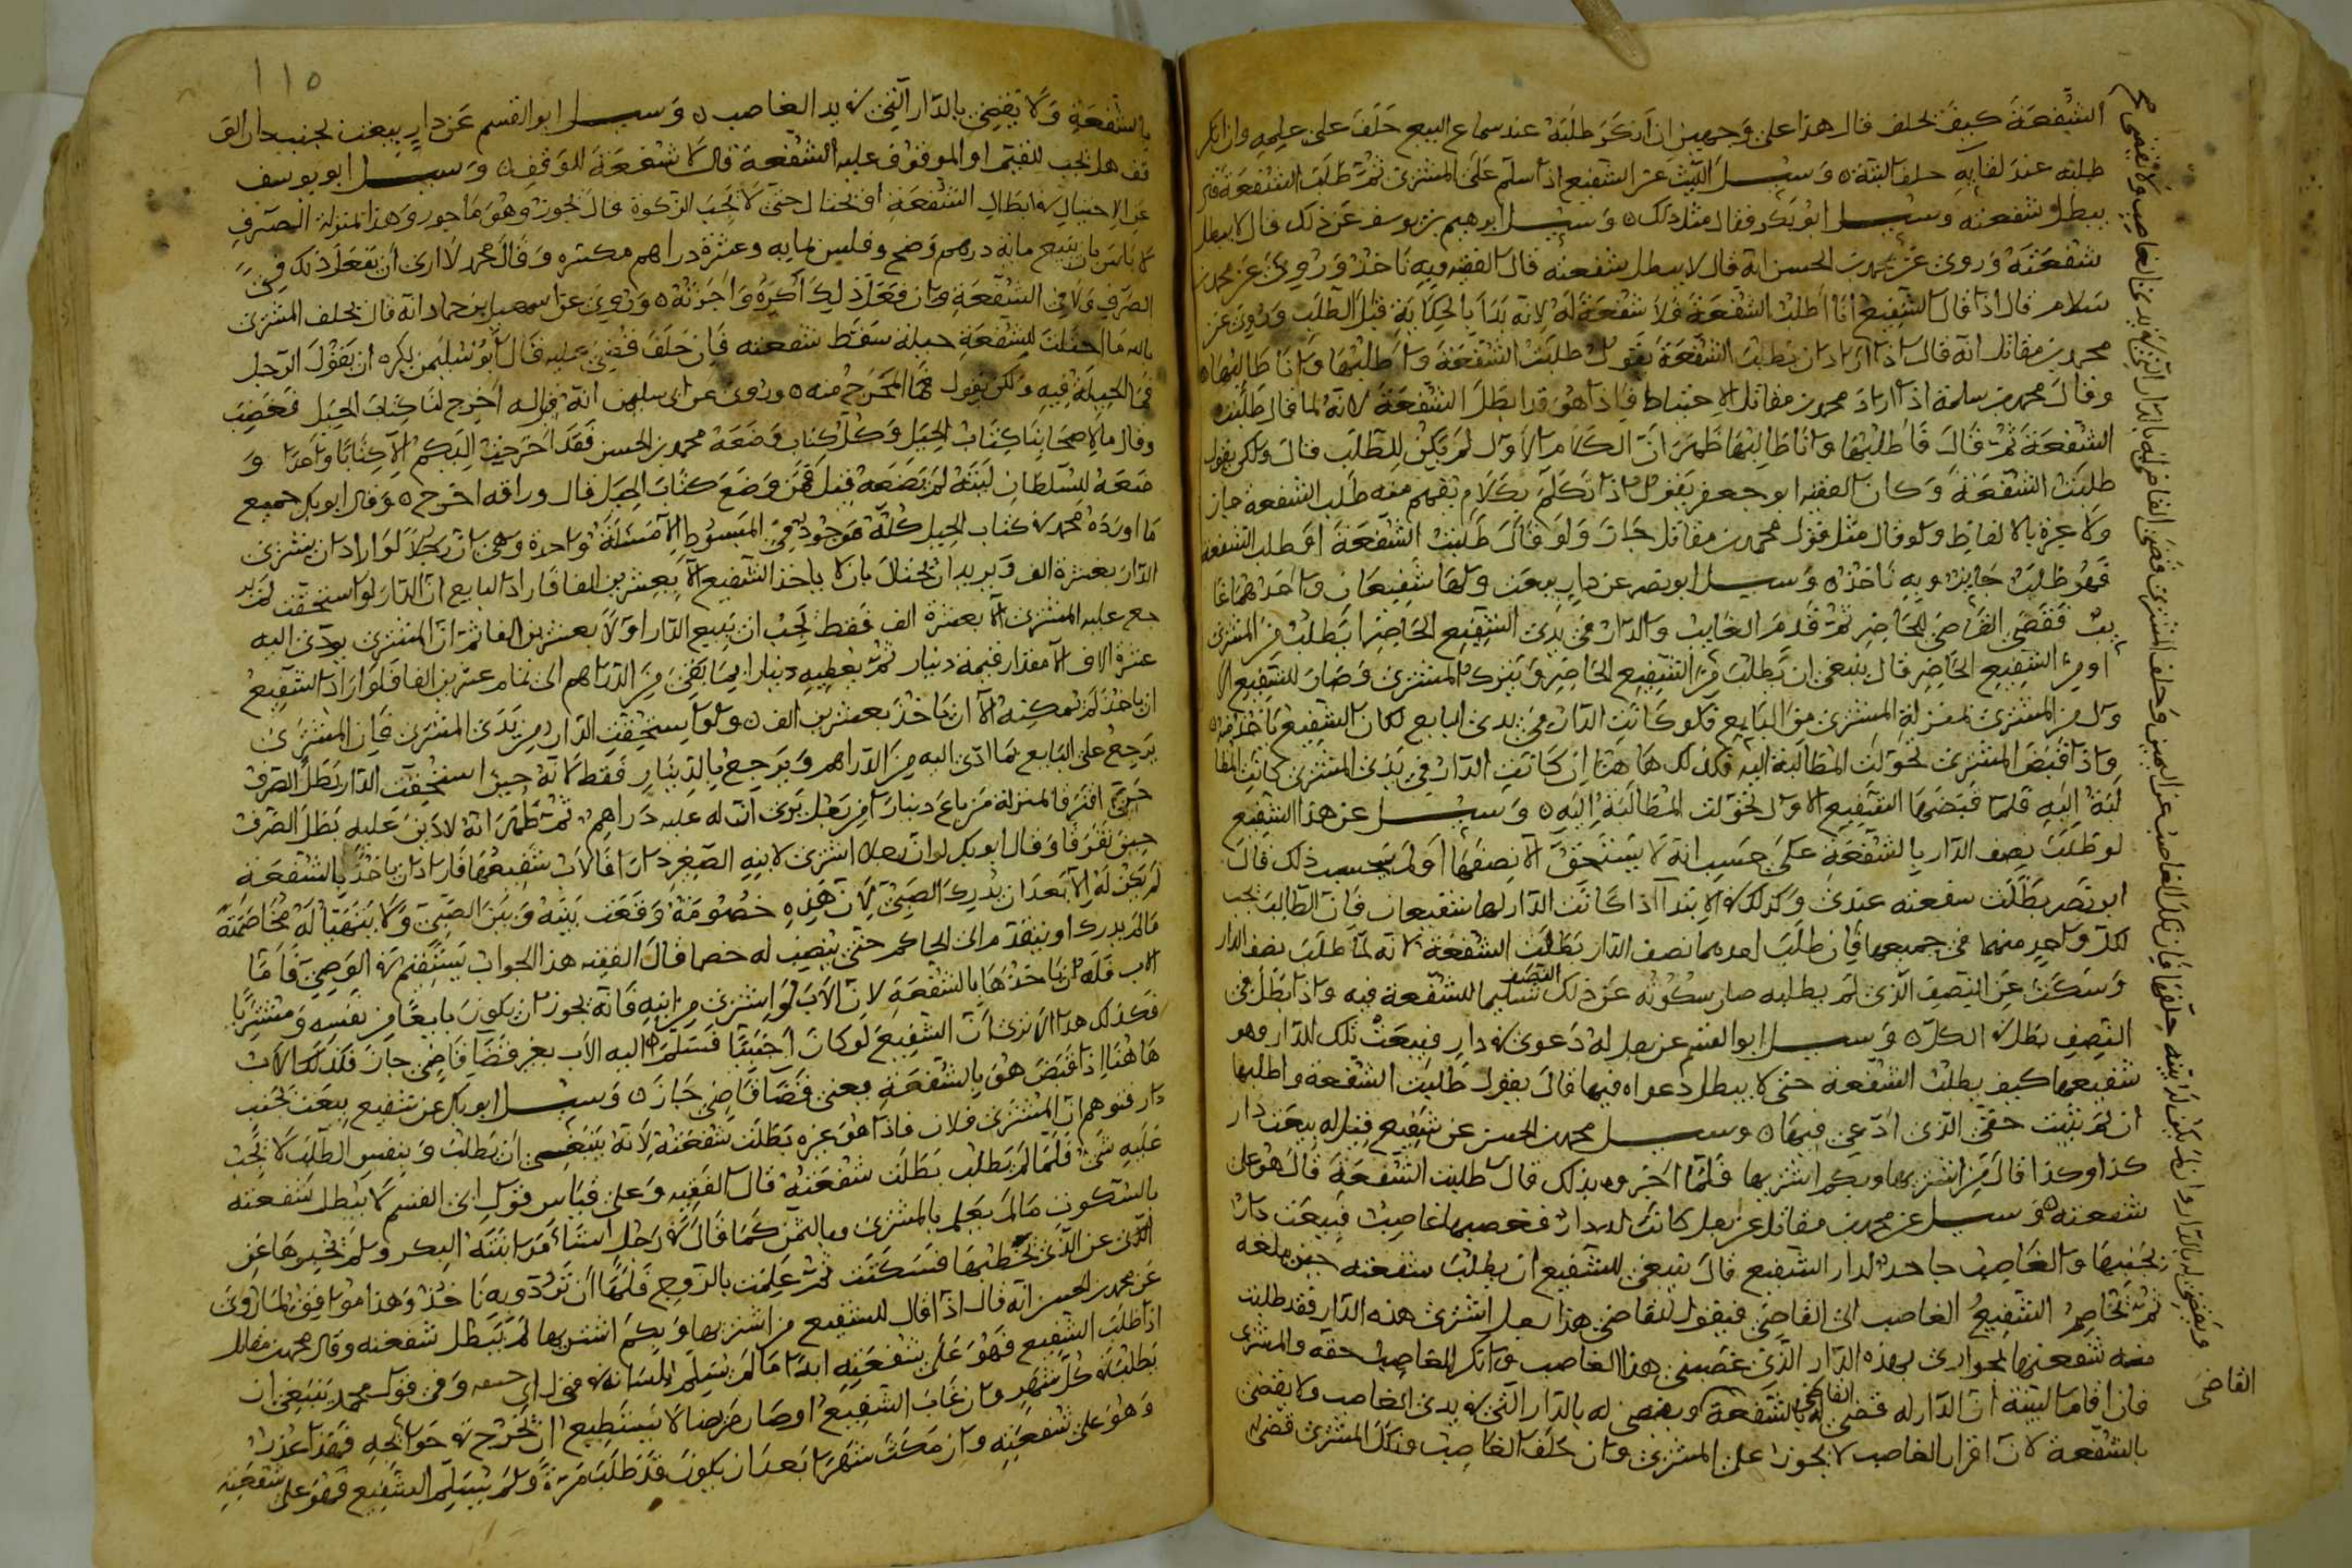 الشفعة كيف يحلف قال هذا على وجهين ان انكر طلبه عند سماع البيع حلف على علمه وان انكر
طلبه عند لقايه حلف البتة وسئل الليث عن الشفيع اذا سلم على المشتري ثم طلب الشفعة قال
يبطل شفعته وسئل ابو بكر فقال مثل ذلك وسئل ابرهيم بن يوسف عن ذلك قال لا يبطل
شفعته وروي عن محمد بن الحسن انه قال لا يبطل شفعته قال الفقيه وبه ناخذ وروي عن محمد بن
سلام قال اذا قال الشفيع انا اطلب الشفعة فلا شفعة له لانه بدا بالحكاية قبل الطلب وروي عن
محمد بن مقاتل انه قال اذا اراد ان يطلب الشفعة يقول طلبت الشفعة واطلبها وانا طالبها
وقال محمد بن سلمة اذا اراد محمد بن مقاتل الاحتياط فاذا هو قد ابطل الشفعة لانه لما قال طلبت
الشفعة ثم قال فاطلبها وانا طالبها ظهر ان الكلام الاول لم يكن للطلب قال ولكن يقول
طلبت الشفعة وكان الفقيه ابو جعفر يقول اذا تكلم بكلام يفهم منه طلب الشفعة جاز
ولا عبرة بالالفاظ ولو قال مثل قول محمد بن مقاتل جاز ولو قال طلبت الشفعة او طلب الشفعة
فهو طلب جايز وبه ناخذ وسئل ابو نصر عن دار بيعت ولها شفيعان واحدهما غا
يب فقضى القاضي للحاضر ثم قدم الغايب والدار في يدي الشفيع الحاضر ايطلب من المشتري
او من الشفيع الحاضر قال ينبغي ان يطلب من الشفيع الحاضر ويترك المشتري وصار للشفيع الا
ول من المشتري بمنزلة المشتري من البايع فلو كانت الدار في يدي البايع لكان الشفيع ياخذ منه
واذا قبض المشتري تحولت المطالبة اليه فكذلك هاهنا ان كانت الدار في يدي المشتري كانت المطا
لبة اليه فلما قبضها الشفيع الاول تحولت المطالبة اليه وسئل عن هذا الشفيع
لو طلب نصف الدار بالشفعة على حسب انه لا يستحق الا نصفها او لم يحسب ذلك قال
ابو نصر بطلت شفعته عندي وكذلك في الابتدا اذا كانت الدار لها شفيعان فان الطالب يجب
لكل واحد منهما في جميعها فان طلب احدهما نصف الدار بطلت الشفعة لانه لما طلب نصف الدار
وسكت عن النصف الذي لم يطلبه صار سكوته عن ذلك النصف تسليما للشفعة فيه واذا بطل في
النصف بطل في الكل وسئل ابو القسم عن رجل له دعوى في دار فبيعت تلك الدار وهو
شفيعها كيف يطلب الشفعة حتى لا يبطل دعواه فيها قال يقول طلبت الشفعة واطلبها
ان لم يثبت حقي الذي ادعي فيها وسئل محمد بن الحسن عن شفيع قيل له بيعت دار
كذا وكذا قال من اشتريها وبكم اشتريها فلما اخبروه بذلك قال طلبت الشفعة قال هو على
شفعته وسئل عن محمد بن مقاتل عن رجل كانت له دار فغصبها غاصب فبيعت دار
بجنبها والغاصب جاحد لدار الشفيع قال ينبغي للشفيع ان يطلب شفعته حين بلغه
ثم يخاصم الشفيع الغاصب الى القاضي فيقول للقاضي هذا رجل اشترى هذه الدار فقد طلبت
منه شفعتها بجواري بهذه الدار الذي غصبني هذا الغاصب وانكر الغاصب حقه والمشتري
فان اقاما البينة ان الدار له قضى القاضي له بالشفعة ويقضي له بالدار التي في يدي الغاصب ولا يقضي
بالشفعة لان اقرار الغاصب لا يجوز على المشتري وان حلف الغاصب ونكل المشتري قضى له
القاضي
ويقضي له بالدار وان لم يكن له بينة حلفهما فان نكل الغاصب عن اليمين وحلف المشتري قضى القاضي له بالدار التي في يدي الغاصب ولا يقضي
١١٥
بالشفعة ولا يقضي بالدار التي في يد الغاصب وسئل ابو القسم عن دار بيعت بجنب دار الو
قف هل يجب للقيم او الموقوف عليه الشفعة قال لا شفعة للوقف وسئل ابو يوسف
عن الاحتيال في ابطال الشفعة او يحتال حتى لا تجب الزكوة قال يجوز وهو ماجور وهذا بمنزلة الصرف
لا باس بان يبيع مائة درهم وضح وفلس بمايه وعشرة دراهم مكسره وقال محمد لا ارى ان يفعل ذلك في
الصرف ولا في الشفعة وان فعل ذلك اكره واجزته وروي عن اسمعيل بن حماد انه قال يحلف المشتري
بالله ما احتلت للشفعة حيلة سقط شفعته فان حلف قضي عليه قال ابو سليمن يكره ان يقول الرجل
ما الحيلة فيه ولكن يقول ما المخرج منه وروي عن ابي سليمن انه قيل له اخرج لنا كتاب الحيل فغضب
وقال ما لاصحابنا كتاب الحيل وكل كتاب وضعه محمد بن الحسن فقد اخرجت اليكم الا كتابا واحدا و
ضعه للسلطان ليته لم يضعه قيل فمن وضع كتاب الحيل قال وراقه اخرج وقال ابو بكر جميع
ما اورده محمد في كتاب الحيل كله موجود في المبسوط الا مسئلة واحدة وهي ان رجلا لو اراد ان يشتري
الدار بعشرة الف ويريد ان يحتال بان لا ياخذ الشفيع الا بعشرين الفا فاراد البايع ان الدار لو استحقت لم ير
جع عليه المشتري الا بعشرة الف فقط يجب ان يبيع الدار اولا بعشرين الفا ثم ان المشتري يودي اليه
عشرة الاف الا مقدار قيمة دينار ثم يعطيه دينارا بما بقي من الدراهم الى تمام عشرين الفا فلو اراد الشفيع
ان ياخذ لم يمكنه الا ان ياخذ بعشرين الف ولو استحقت الدار من يدي المشتري فان المشتري
يرجع على البايع بما ادى اليه من الدراهم ويرجع بالدينار فقط لانه حين استحقت الدار بطل الصرف
حين افترقا لمنزلة من باع دينارا من رجل يرى ان له عليه دراهم ثم ظهر انه لا دين عليه بطل الصرف
حين تفرقا وقال ابو بكر لو ان رجلا اشترى لابنه الصغير دارا فالاب شفيعها فاراد ان ياخذ بالشفعة
لم يكن له الا بعد ان يدرك الصبي لان هذه خصومة وقعت بينه وبين الصبي ولا يتهيا له مخاصمته
ما لم يدرك او يتقدم الى الحاكم حتى ينصب له خصما قال الفقيه هذا الجواب يستقيم في الوصي فاما
الاب فله ان ياخذها بالشفعة لان الاب لو اشترى من ابنه فانه يجوز ان يكون بايعا من نفسه ومشتريا
فكذلك هذا الا ترى ان الشفيع لو كان اجنبيا فسلم اليه الاب بغير قضا قاضي جاز فكذلك الاب
هاهنا اذا قبض هو بالشفعة بغير قضا قاضي جاز وسئل ابو بكر عن شفيع بيعت بجنب
دار فتوهم ان المشتري فلان فاذا هو غيره بطلت شفعته لانه ينبغي ان يطلب وبنفس الطلب لا يجب
عليه شي فلما لم يطلب بطلت شفعته قال الفقيه وعلى قياس قول ابي القسم لا يبطل شفعته
بالسكوت ما لم يعلم بالمشتري وبالثمن كما قال في رجل استامر ابنته البكر ولم يخبرها عن
الذي يخطبها فسكتت ثم علمت بالزوج فلها ان ترد وبه ناخذ وهذا موافق لما روي
عن محمد بن الحسن انه قال اذا قال للشفيع من اشتريها وبكم اشتريها لم يبطل شفعته وقال محمد بن مقاتل
اذا طلب الشفيع فهو على شفعته ابدا ما لم يسلم بلسانه في قول ابي حنيفه وفي قول محمد ينبغي ان
يطلبه كل شهر وان غاب الشفيع او صار مريضا لا يستطيع ان يخرج في حوايجه فهذا عذر
وهو على شفعته وان مكث شهرا بعد ان يكون قد طلب مرة ولم يسلم الشفيع فهو على شفعته